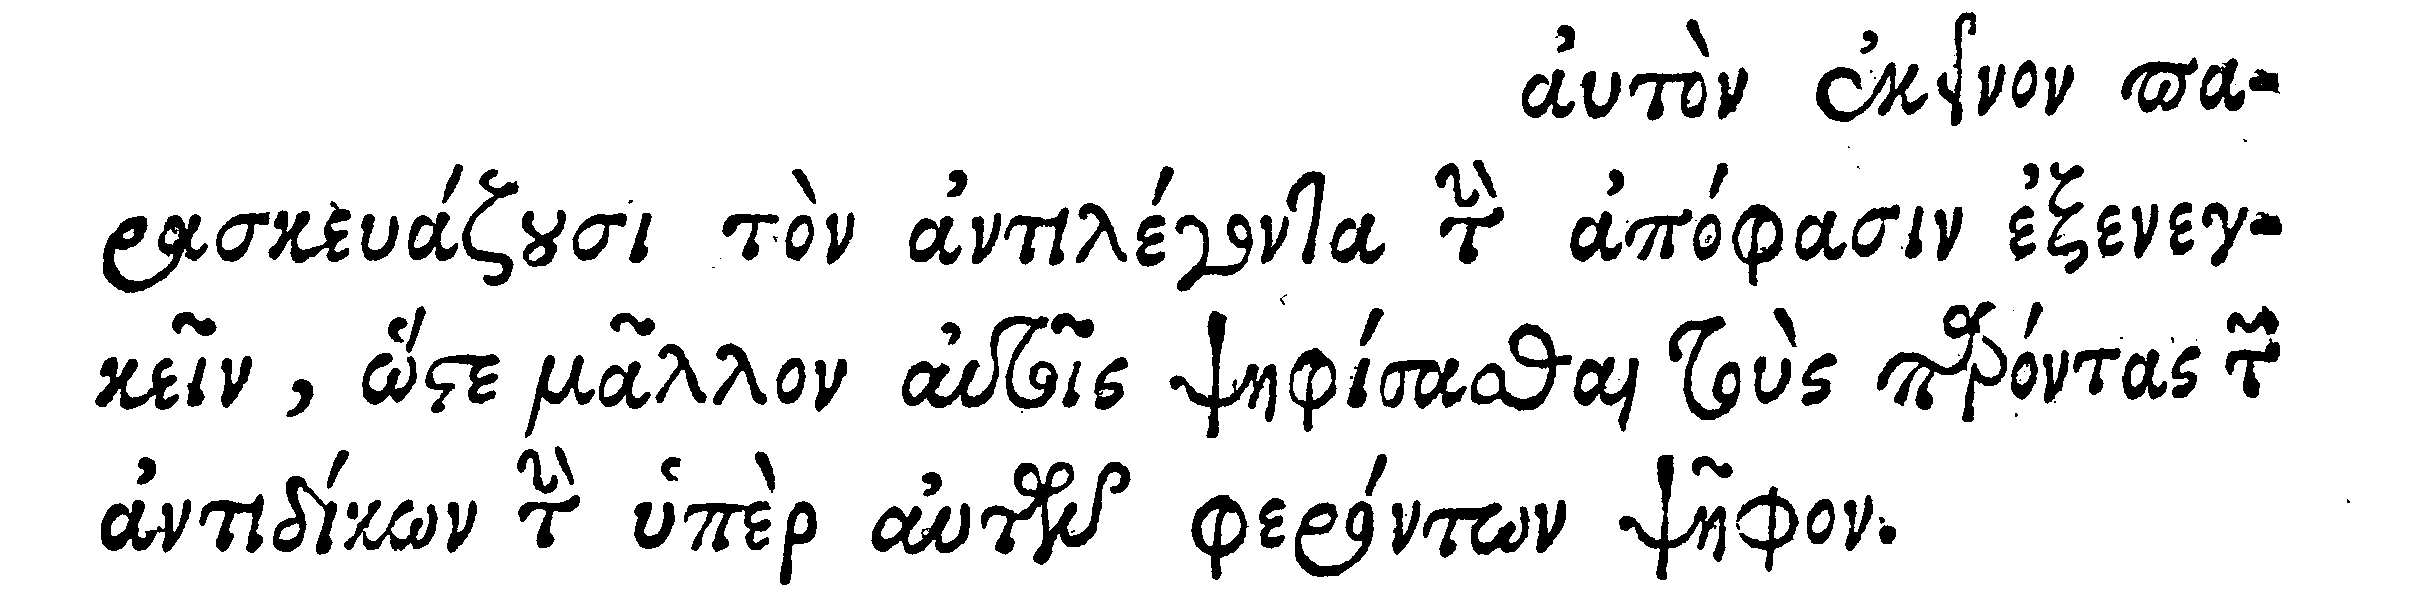 αὐτὸν ἐκεῖνον πα-
ρασκευάζουσι τὸν ἀντιλέγοντα τὴν ἀπόφασιν ἐξενεγ-
κεῖν, ὥστε μᾶλλον αὐτοῖς ψηφίσασθαι τοὺς παρόντας τῶν
ἀντιδίκων τὴν ὑπὲρ αὐτῶν φερόντων ψῆφον.